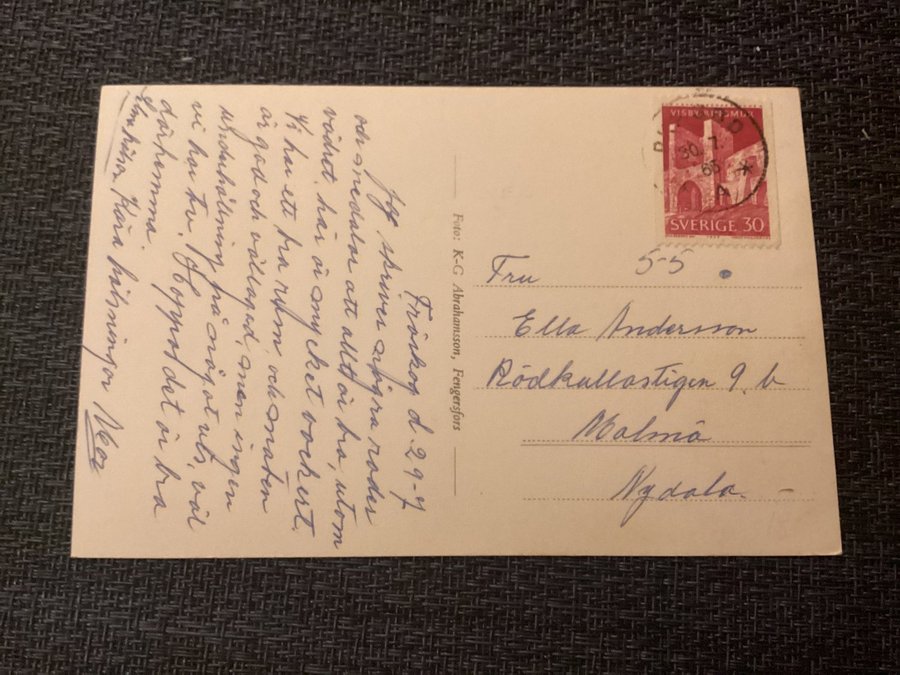 Fröskog d. 29-7
Jag skriver några rader
och medalar att allt är bra, utom
vädret. här är mycket vackert.
Vi har ett bra rum och maten
är god och vällagad, men ingen
underhållning på något vis, väl
vi har tv. Hoppas det är bra
därhemma.
Kära hälsningar Mor
Foto: K-G Abrahamsson, Fengersfors
VISBY RINGMUR
SVERIGE 30
30. 7.
65
A
55
Fru
Ella Andersson
Rödkullastigen 9. b
Malmö
Nydala.